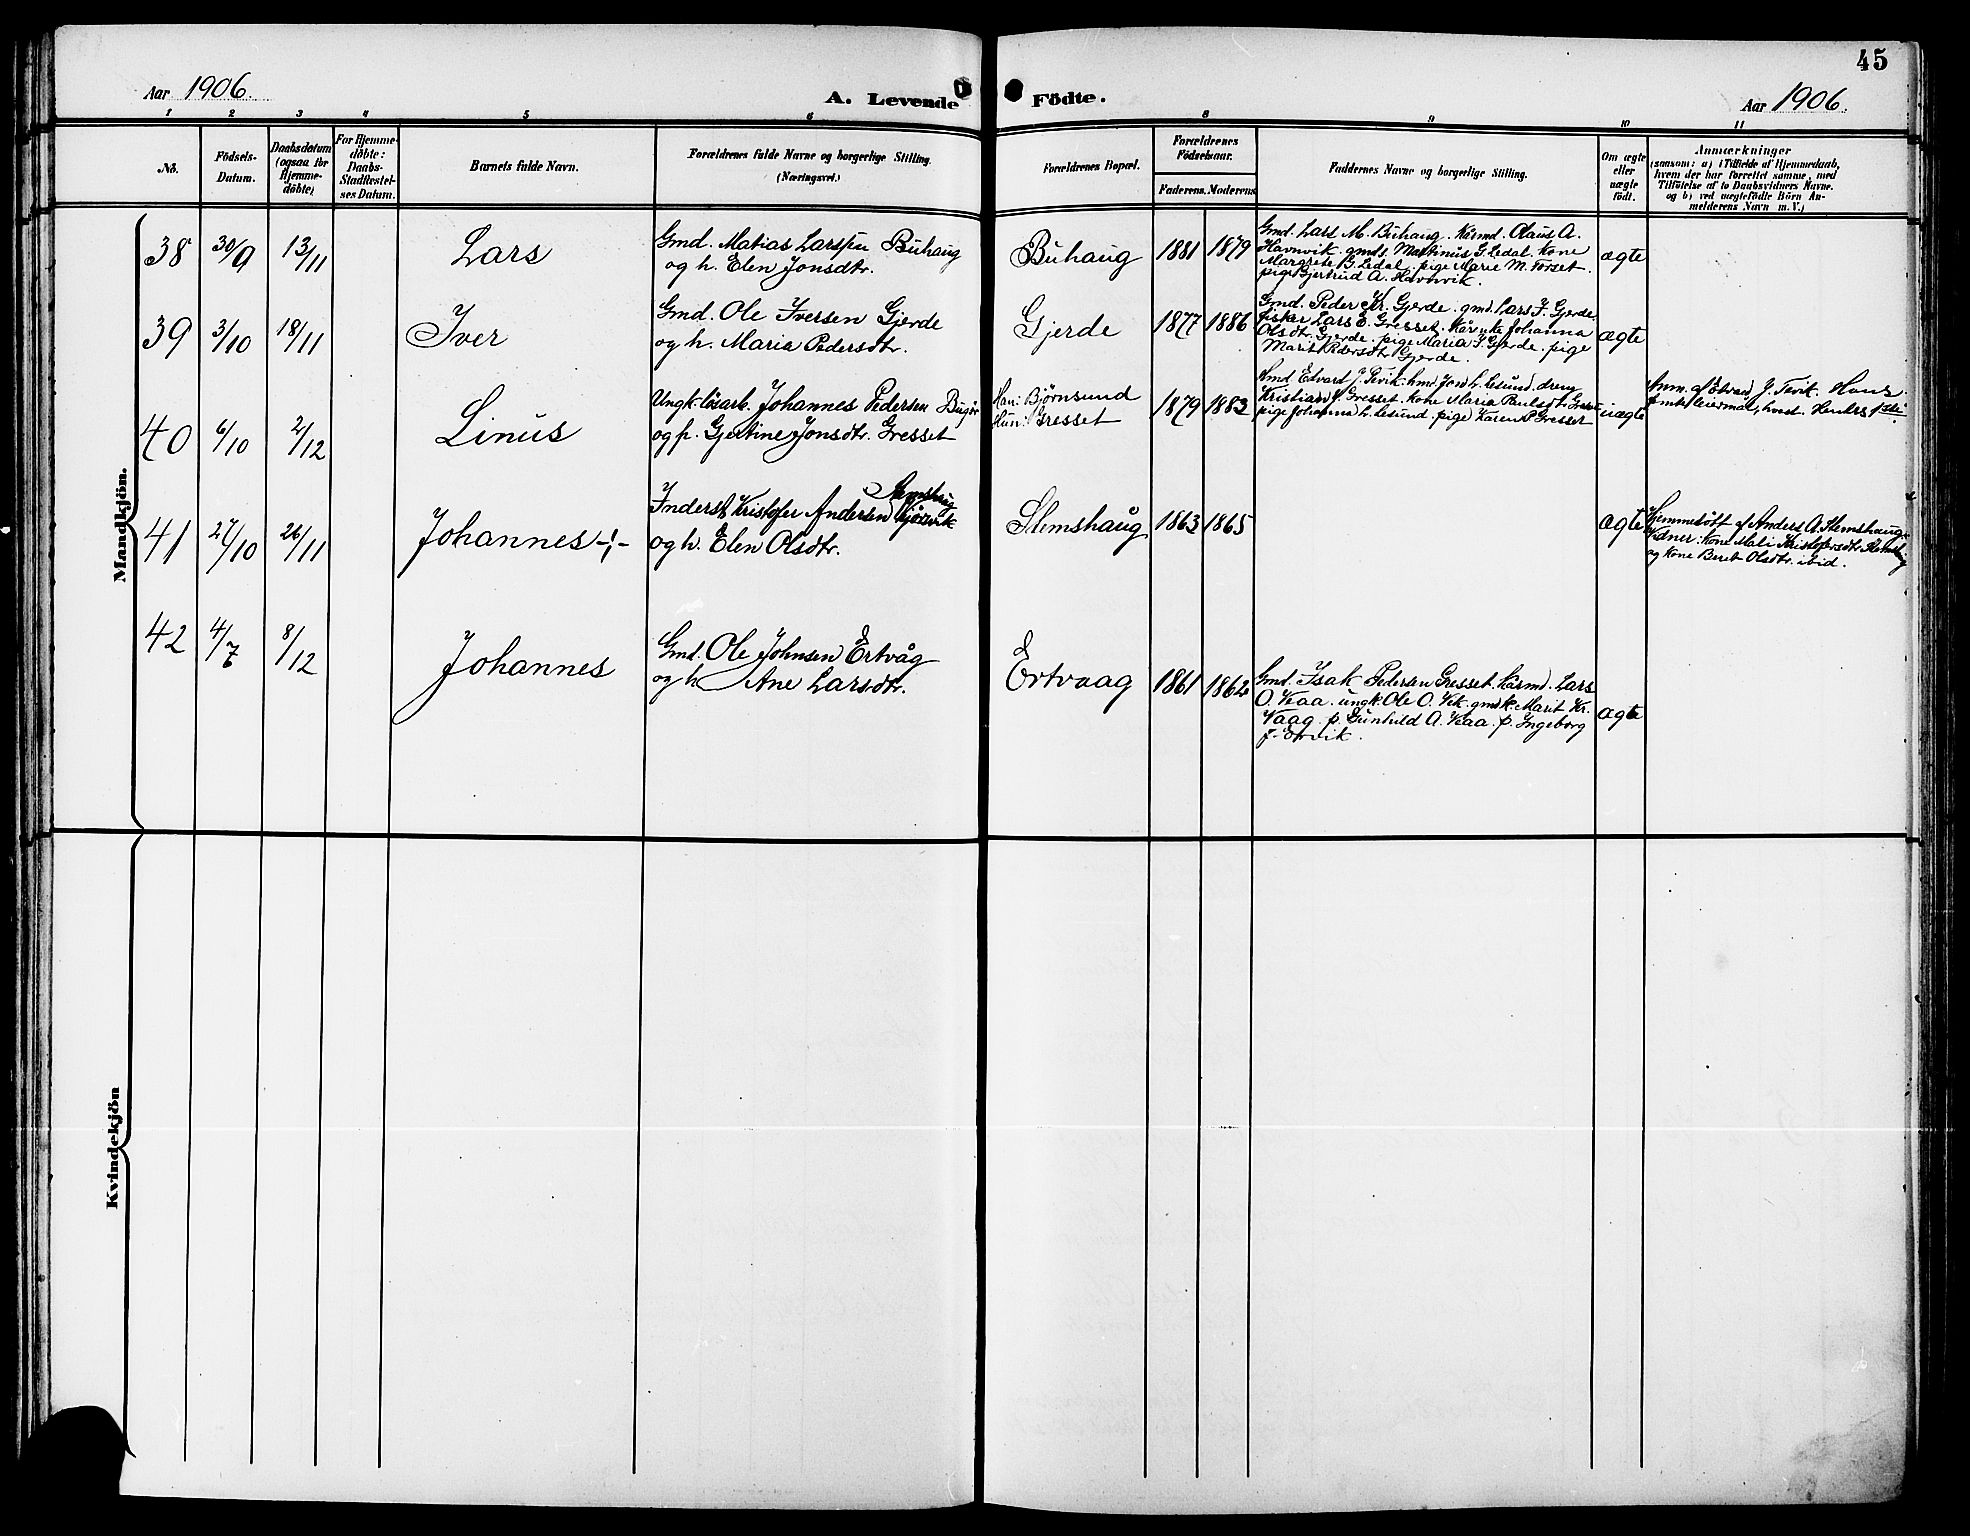 45
Aar 1906.
A. Levende Födte.
Aar 1906.
1 2 3 4 5 6 8 9 10 11
No.
Födsels-
Datum.
Daabsdatum
(ogsaa for
Hjemme-
döbte)
For Hjemme-
döbte:
Daabs-
Stadfæstel-
ses Datum.
Barnets fulde Navn.
Forældrenes fulde Navne og borgerlige Stilling.
(Næringsvei.)
Forældrenes Bopæl.
Forældrenes
Födselsaar.
Faderens. Moderens.
Faddernes Navne og borgerlige Stilling.
Om ægte
eller
uægte
födt.
Anmærkninger
(saasom: a) i Tilfælde af Hjemmedaab,
hvem der har forrettet samme, med
Tilföielse af to Daabsvidners Navne.
og b) ved uægtefödte Börn An-
melderens Navn m. V.)
Mandkjön.
38 30/9 13/11 Lars
Gmd. Matias Larssen Buhaug
og h. Elen Jonsdtr.
Buhaug 1881 1879
Gmd. Lars M. Buhaug. Kårmd. Olaus A.
Havnvik. gmds. Martinus G. Ledal. Kone
Margrete B. Ledal. pige Marie M. Torset.
pige Gjertrud A. Havnvik.
ægte
39 3/10 18/11 Iver
Gmd. Ole Iversen Gjerde
og h. Maria Pedersdtr.
Gjerde 1877 1886
Gmd. Peder Kr. Gjerde. gmd. Lars I. Gjerde.
fisker Lars E. Gresset. Kårenke Johanna
Olsdtr. Gjerde. pige Maria I. Gjerde. pige
Marit Pedersdtr. Gjerde.
ægte
40 6/10 2/12 Linus
Ungk. løsarb. Johannes Pedersen
og p. Gjertine Jonsdtr. Gresset
Han: Bjørnsund
Hun: Gresset
1879 1883
Hmd. Edvart J. Tevik. hmd. Jon L. Lesund. dreng
Kristian J. Gresset. Kone Maria Paulsdtr.
pige Johanna L. Lesund. pige Karen P. Gresset
uægte
Anm. af Edvard J. Tevik. Hans
leiermaal, hendes 1ste.
41 27/10 26/11 Johannes -¦-
Stemshaug
Inderst Kristofer Andersen
og h. Elen Olsdtr.
Stemshaug 1863 1865
ægte
Hjemmedøbt af Anders A. Stemshaug.
Vidner: Kone Mali Kristofersdtr. Stemshaug
og Kone Beret Olsdtr. ibid.
42 4/7 8/12 Johannes
Gmd. Ole Johnsen Ertvåg
og h. Ane Larsdtr.
Ertvaag 1861 1862
Gmd. Isak Pedersen Gresset. Kårmd. Lars
O. Vaa. ungk. Ole O. Vik. gmdk. Marit Kr.
Vaag. p. Gunhild A. Vaa. p. Ingeborg
ægte
Kvindekjön